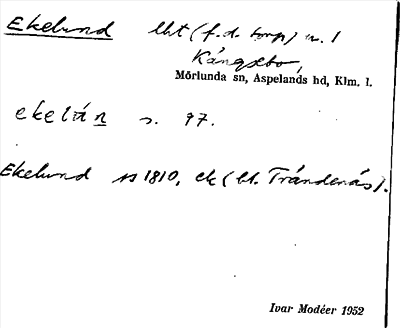 Ekelund lht (f.d. torp) u. 1
Kångsebo,
Mörlunda sn, Aspelands hd, Klm. l.
ekelún s. 97.
Ekelund ss 1810, ek (bl. Tråndenäs).
Ivar Modéer 1952